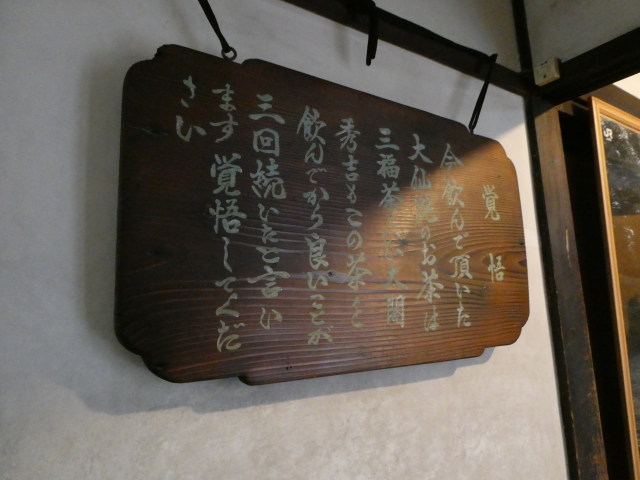 覚悟
今飲んで頂いた
大仙院のお茶は
三福茶 太閤
秀吉もこの茶を
飲んでから良いことが
三回続いたと言い
ます 覚悟してくだ
さい